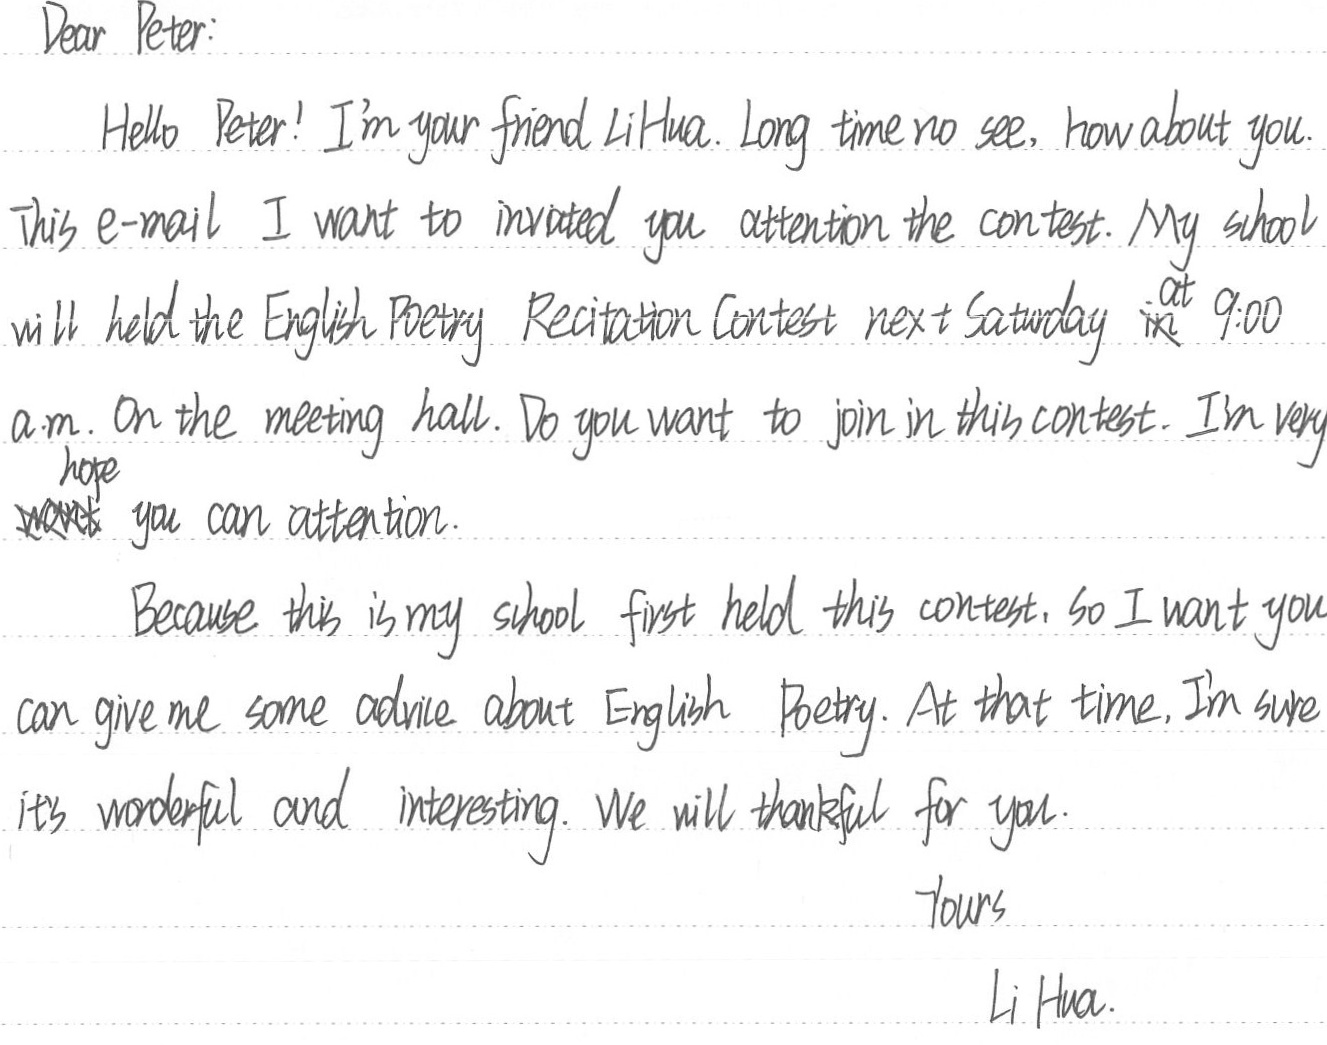 Dear Peter:
Hello Peter! I'm your friend Li Hua. Long time no see, how about you.
This e-mail I want to inviated you attention the contest. My school
will held the English Poetry Recitation Contest next Saturday at 9:00
a.m. On the meeting hall. Do you want to join in this contest. I'm very
hope you can attention.
Because this is my school first held this contest, so I want you
can give me some advice about English Poetry. At that time, I'm sure
it's wonderful and interesting. We will thankful for you.
Yours
Li Hua.